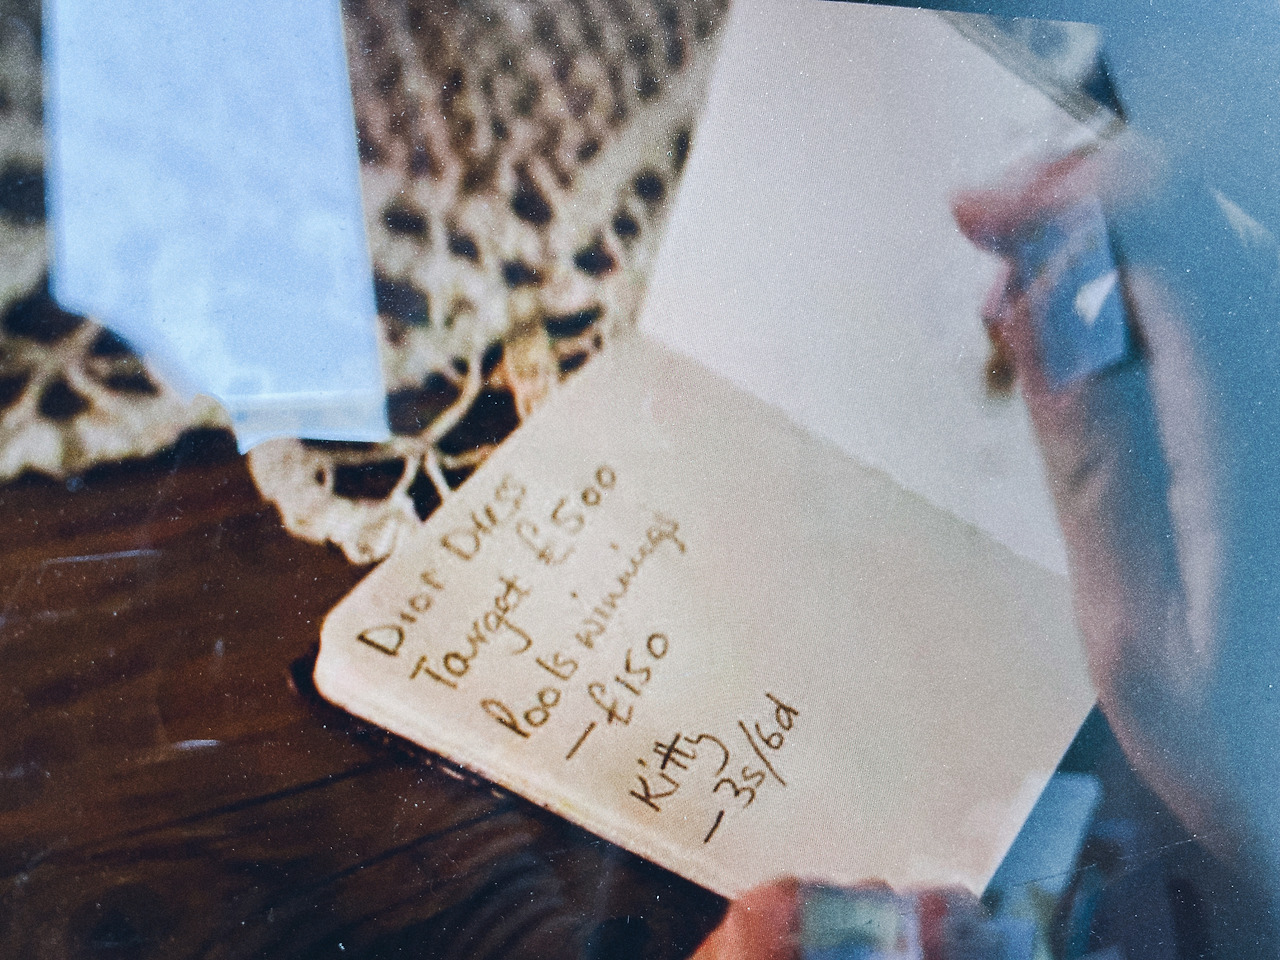 Dior Dress
Target £500
Pools winnings
- £150
Kitty
- 3s/6d